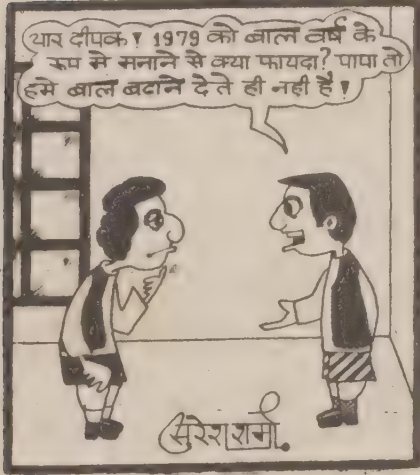 यार दीपक ! 1979 को बाल वर्ष के
रूप में मनाने से क्या फायदा? पापा तो
हमे बाल बढाने देते ही नही है !
सुरेश शर्मा.